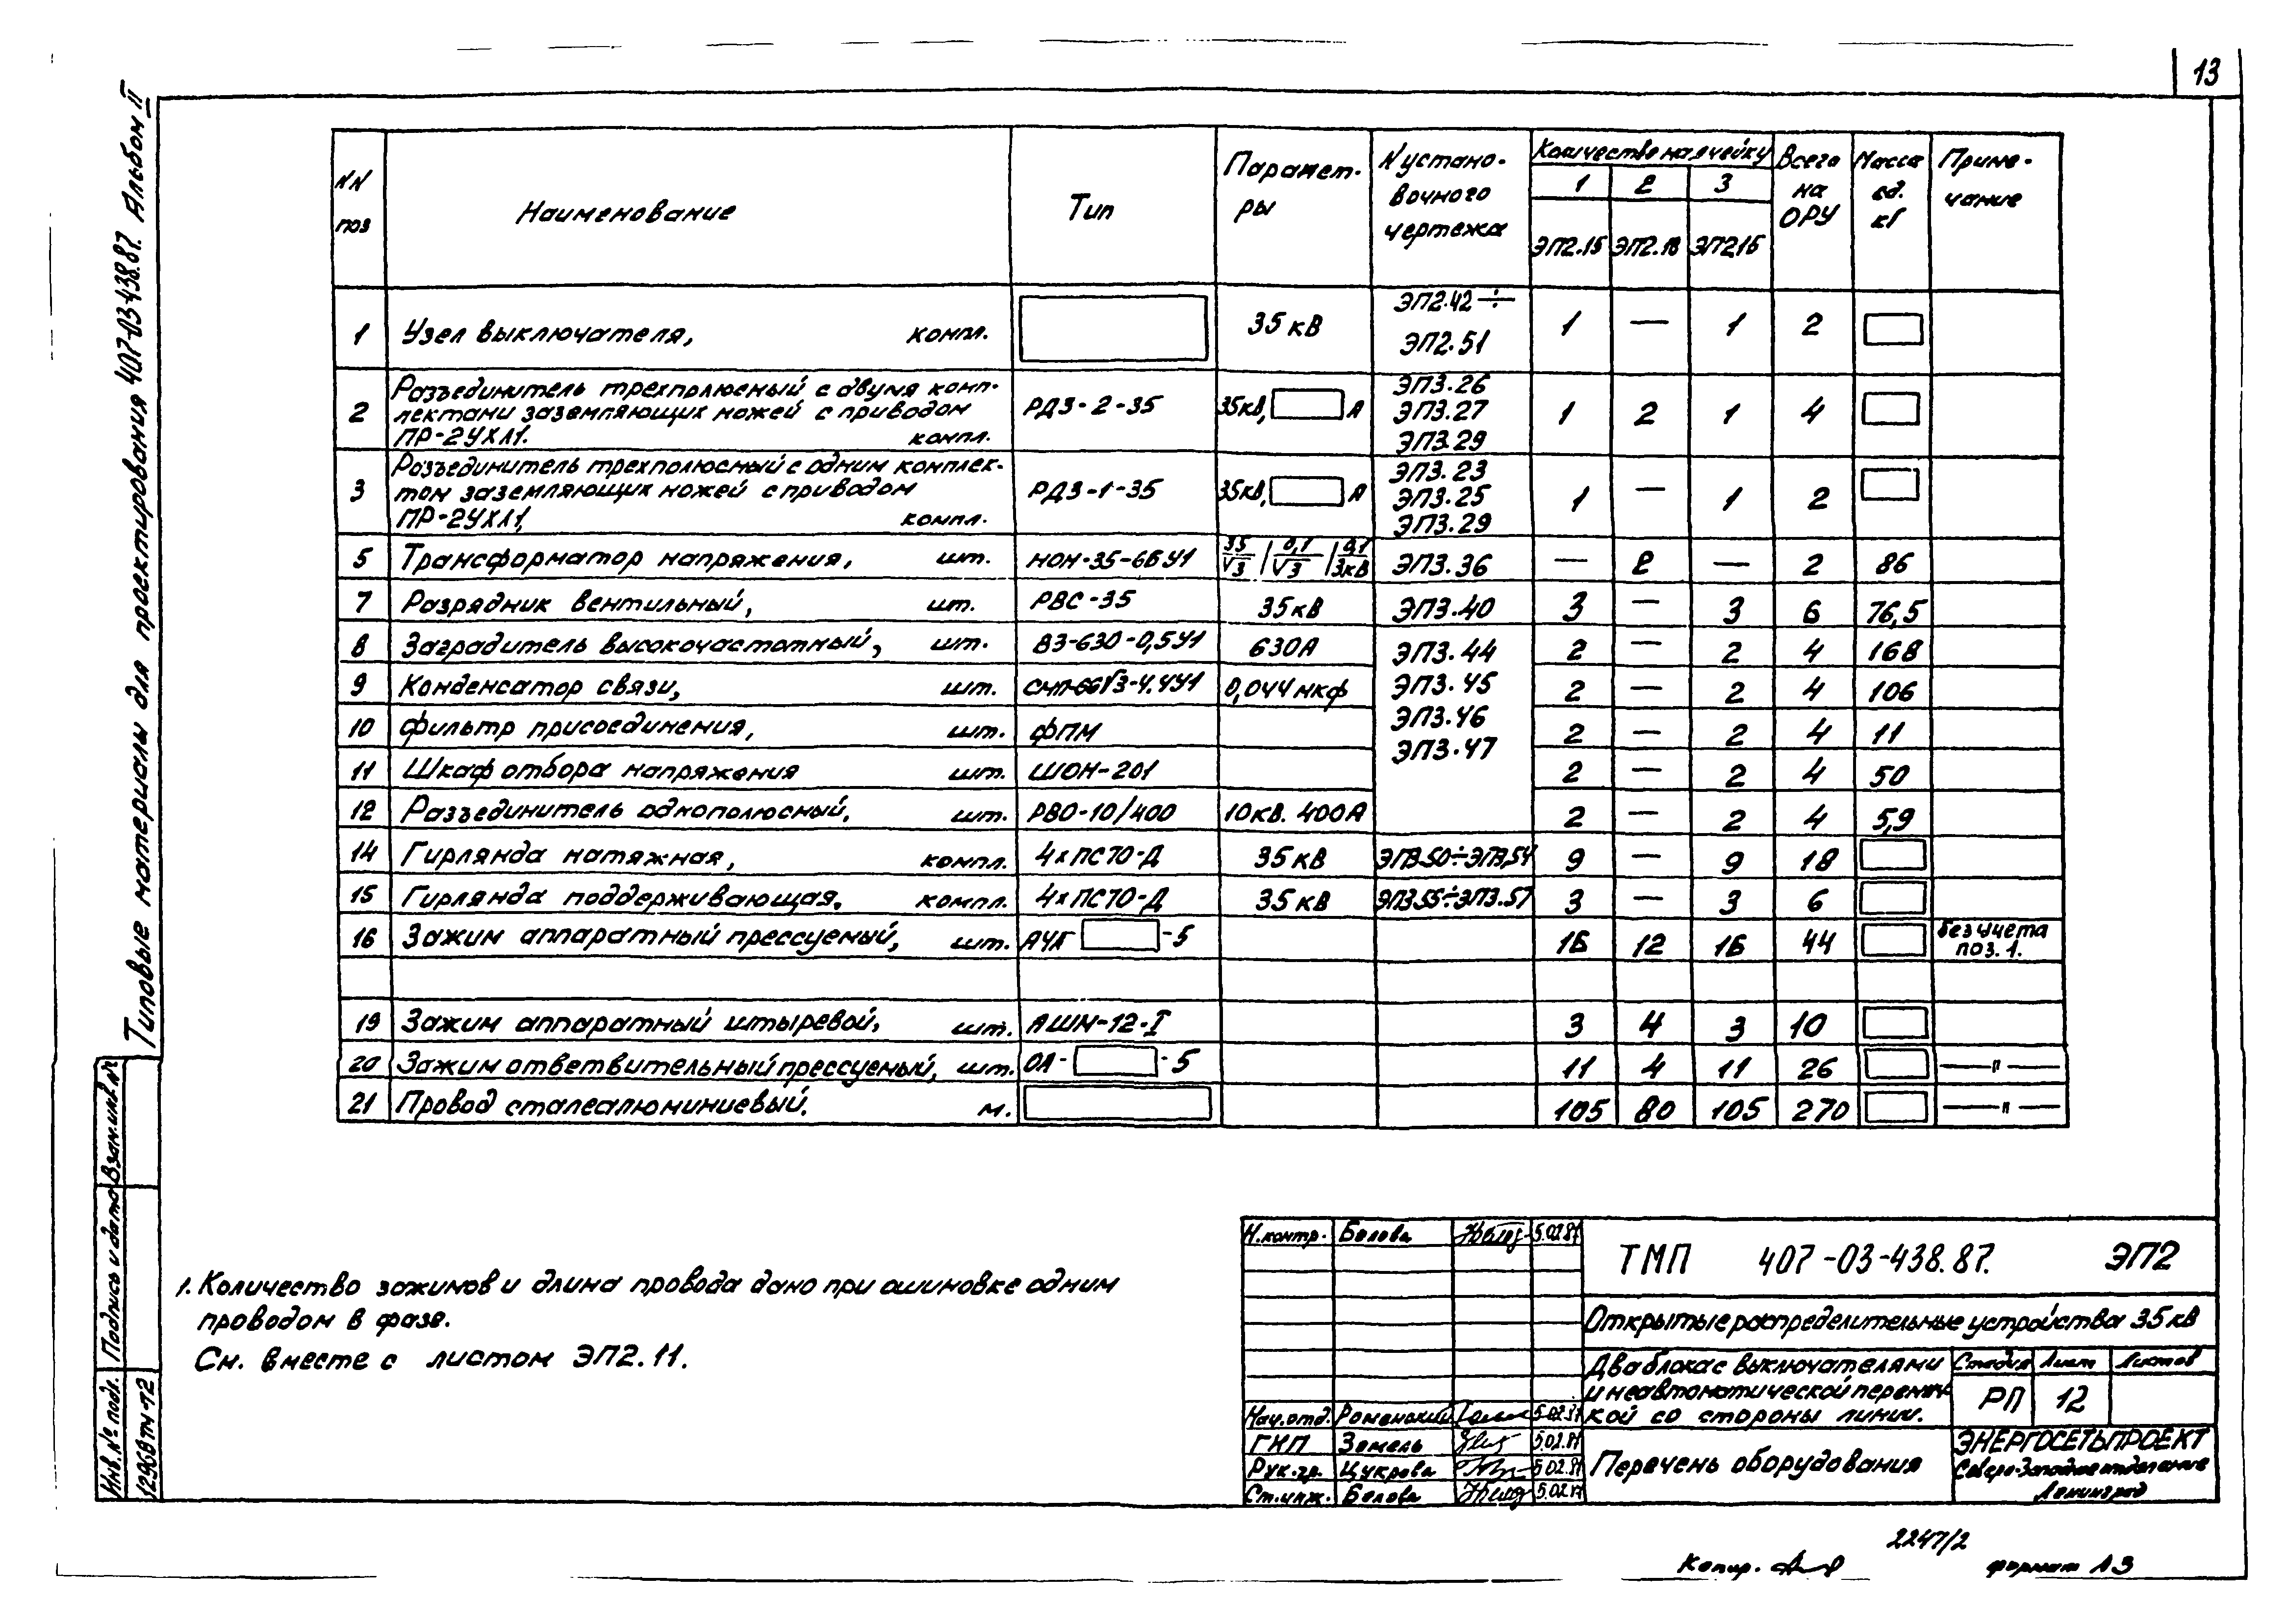 13
Типовые материалы для проектирования 407-03-438.87. Альбом II
NN поз
Наименование
Тип
Парамет-
ры
N устано-
вочного
чертежа
Количество на ячейку
1 2 3
ЭП2.15 ЭП2.18 ЭП2.16
Всего
на
ОРУ
Масса
ед.
кг
Приме-
чание
1 Узел выключателя, компл. 35 кВ ЭП2.42 ÷ ЭП2.51 1 — 1 2
2 Разъединитель трехполюсный с двумя комп-
лектами заземляющих ножей с приводом
ПР-2УХЛ1. компл. РДЗ-2-35 35кВ, А ЭП3.26 ЭП3.27 ЭП3.29 1 2 1 4
3 Разъединитель трехполюсный с одним комплек-
том заземляющих ножей с приводом
ПР-2УХЛ1, компл. РДЗ-1-35 35кВ, А ЭП3.23 ЭП3.25 ЭП3.29 1 — 1 2
5 Трансформатор напряжения, шт. 35/√3 / 0,1/√3 / 0,1/3 кВ ЭП3.36 — 2 — 2 86
7 Разрядник вентильный, шт. РВС-35 35кВ ЭП3.40 3 — 3 6 76,5
8 Заградитель высокочастотный, шт. ВЗ-630-0,5У1 630А ЭП3.44 2 — 2 4 168
9 Конденсатор связи, шт. 0,044 мкф ЭП3.45 2 — 2 4 106
10 Фильтр присоединения, шт. ФПМ ЭП3.46 2 — 2 4 11
ЭП3.47
11 Шкаф отбора напряжения шт. ШОН-201 2 — 2 4 50
12 Разъединитель однополюсный, шт. РВО-10/400 10кВ. 400А 2 — 2 4 5,9
14 Гирлянда натяжная, компл. 4хПС70-Д 35кВ ЭП3.50÷ЭП3.54 9 — 9 18
15 Гирлянда поддерживающая, компл. 4хПС70-Д 35кВ ЭП3.55÷ЭП3.57 3 — 3 6
16 Зажим аппаратный прессуемый, шт. -5 16 12 16 44 без учета
поз. 1.
19 Зажим аппаратный штыревой, шт. АШМ-12-I 3 4 3 10
20 Зажим ответвительный прессуемый, шт. ОА- -5 11 4 11 26 —"—
21 Провод сталеалюминиевый. м. 105 80 105 270 —"—
1. Количество зажимов и длина провода дано при ошиновке одним
проводом в фазе.
См. вместе с листом ЭП2.11.
Инв. № подл. Подпись и дата Взам.инв.№
12968тм-т2
Н.контр. Белова 5.02.87
Нач.отд. Роменский 5.02.87
ГИП Земель 5.02.87
Рук.гр. Цукрова 5.02.87
Ст.инж. Белова 5.02.87
ТМП 407-03-438.87. ЭП2
Открытые распределительные устройства 35 кВ
Два блока с выключателями
и неавтоматической перемыч-
кой со стороны линии.
Стадия Лист Листов
РП 12
Перечень оборудования
ЭНЕРГОСЕТЬПРОЕКТ
Северо-Западное отделение
Ленинград
2247/2
Копир.
формат А3